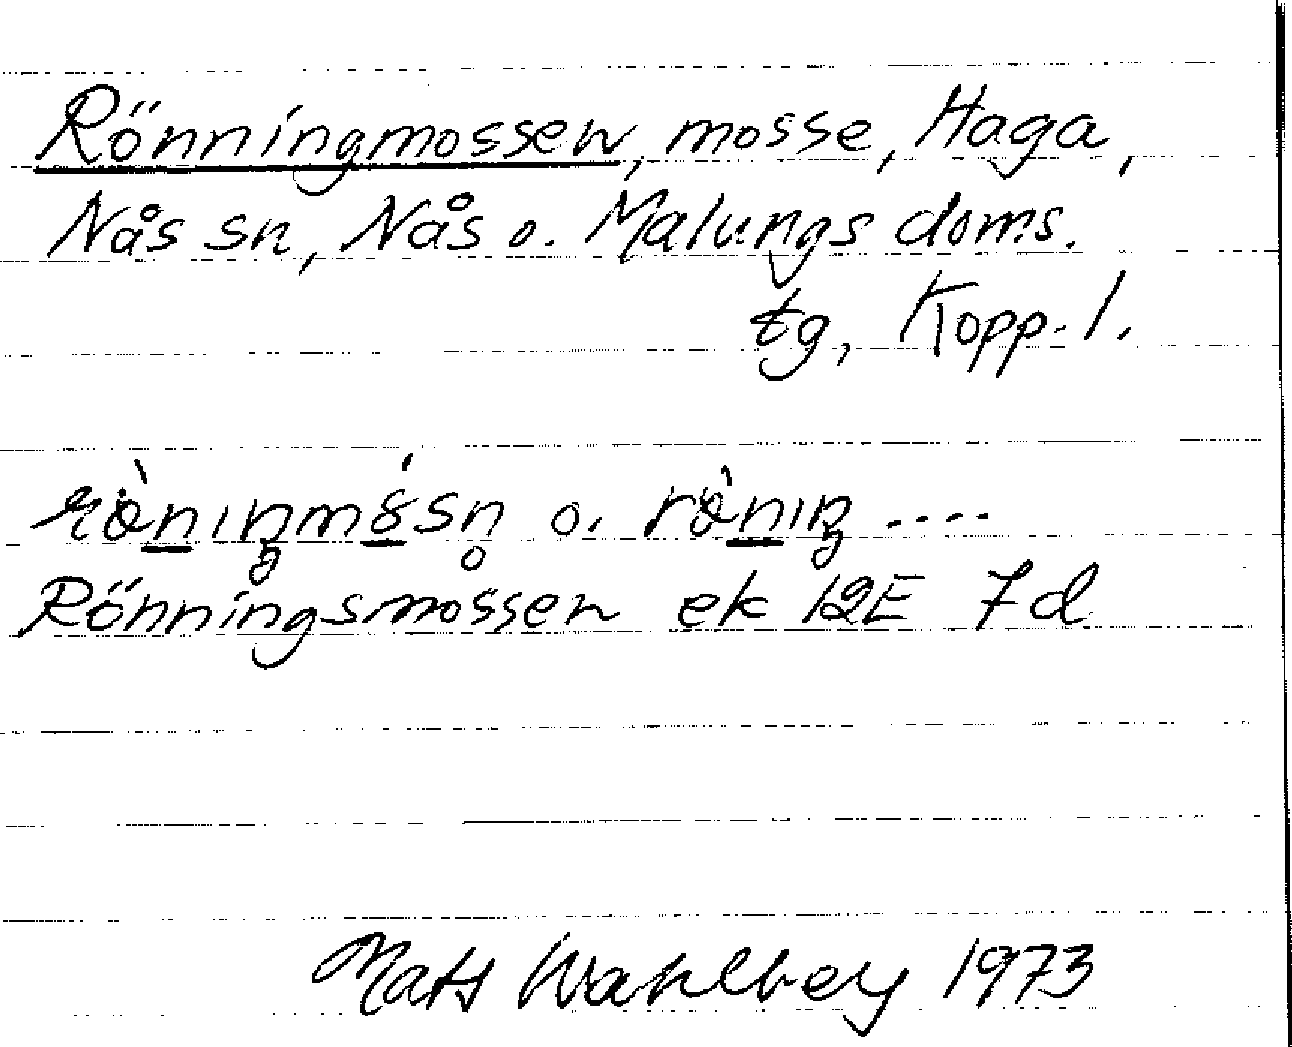 Rönningmossen, mosse, Haga,
Nås sn, Nås o. Malungs doms.
tg, Kopp. l.
rö̀nıŋmósn̥ o. rö̀nıŋ ....
Rönningsmossen ek 12E 7d
Mats Wahlberg 1973